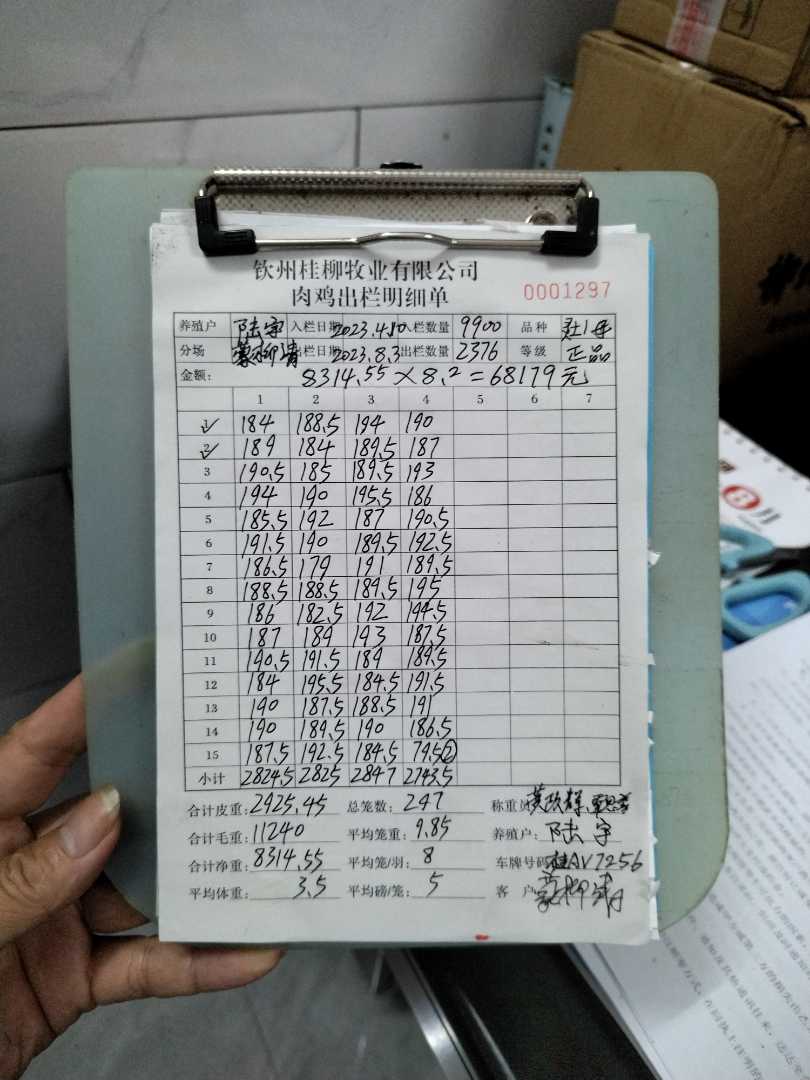 钦州桂柳牧业有限公司
肉鸡出栏明细单 0001297
养殖户 陆宇 入栏日期 2023.4.10 入栏数量 9900 品种
分场 出栏日期 2023.8.3 出栏数量 2376 等级 正品
金额: 8314.55×8.2=68179元
1 2 3 4 5 6 7
1 184 188.5 194 190
2 189 184 189.5 187
3 190.5 185 189.5 193
4 194 190 195.5 186
5 185.5 192 187 190.5
6 191.5 190 189.5 192.5
7 186.5 179 191 189.5
8 188.5 188.5 189.5 195
9 186 182.5 192 194.5
10 187 189 193 187.5
11 190.5 191.5 189 189.5
12 184 195.5 184.5 191.5
13 190 187.5 188.5 191
14 190 189.5 190 186.5
15 187.5 192.5 184.5 79.5②
小计 2824.5 2825 2847 2743.5
合计皮重: 2925.45 总笼数: 247 称重员
合计毛重: 11240 平均笼重: 9.85 养殖户: 陆宇
合计净重: 8314.55 平均笼/羽: 8 车牌号码 桂AV7256
平均体重: 3.5 平均磅/笼: 5 客户
8月